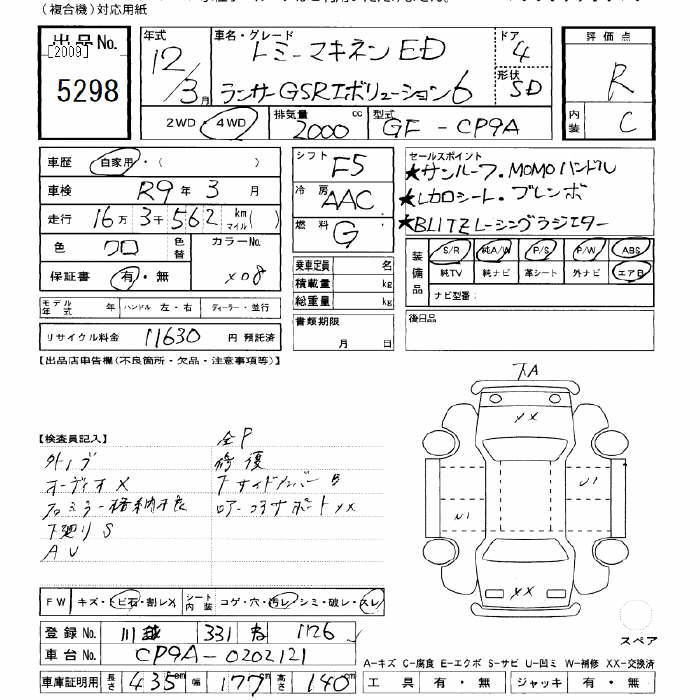 (複合機)対応用紙
出品No.
[2009]
5298
年式
12/3月
車名・グレード
トミーマキネンED
ランサーGSRエボリューション6
ドア
4
形状
SD
評価点
R
内装
C
2WD・4WD
排気量
2000cc
型式
GF-CP9A
車歴
自家用・( )
車検
R9年 3月
走行
16万3千562km(マイル)
色
クロ
色替
カラーNo.
X08
保証書
有・無
モデル年式 年
ハンドル 左・右
ディーラー・並行
リサイクル料金
11630円 預託済
シフト
F5
冷房
AAC
燃料
G
乗車定員 名
積載量 kg
総重量 kg
書類期限
月 日
セールスポイント
★サンルーフ.MOMOハンドル
★レカロシート・ブレンボ
★BLITZレーシングラジエター
装備品
S/R 純A/W P/S P/W ABS
純TV 純ナビ 革シート 外ナビ エアB
ナビ型番:
後日品
【出品店申告欄(不良箇所・欠品・注意事項等)】
下A
【検査員記入】
全P
外ノブ
修復
オーディオX
下サイドメンバーB
右ミラー格納不良
ロアーコアサポートXX
下廻りS
AU
XX
U1
U1
XX
FW
キズ・トビ石・割レX
シート内装
コゲ・穴・汚レ・シミ・破レ・スレ
登録No.
川越 331 1126
車台No.
CP9A-0202121
車庫証明用
長さ 435cm
幅 177cm
高さ 140cm
スペア
A-キズ C-腐食 E-エクボ S-サビ U-凹ミ W-補修 XX-交換済
工具 有・無
ジャッキ 有・無